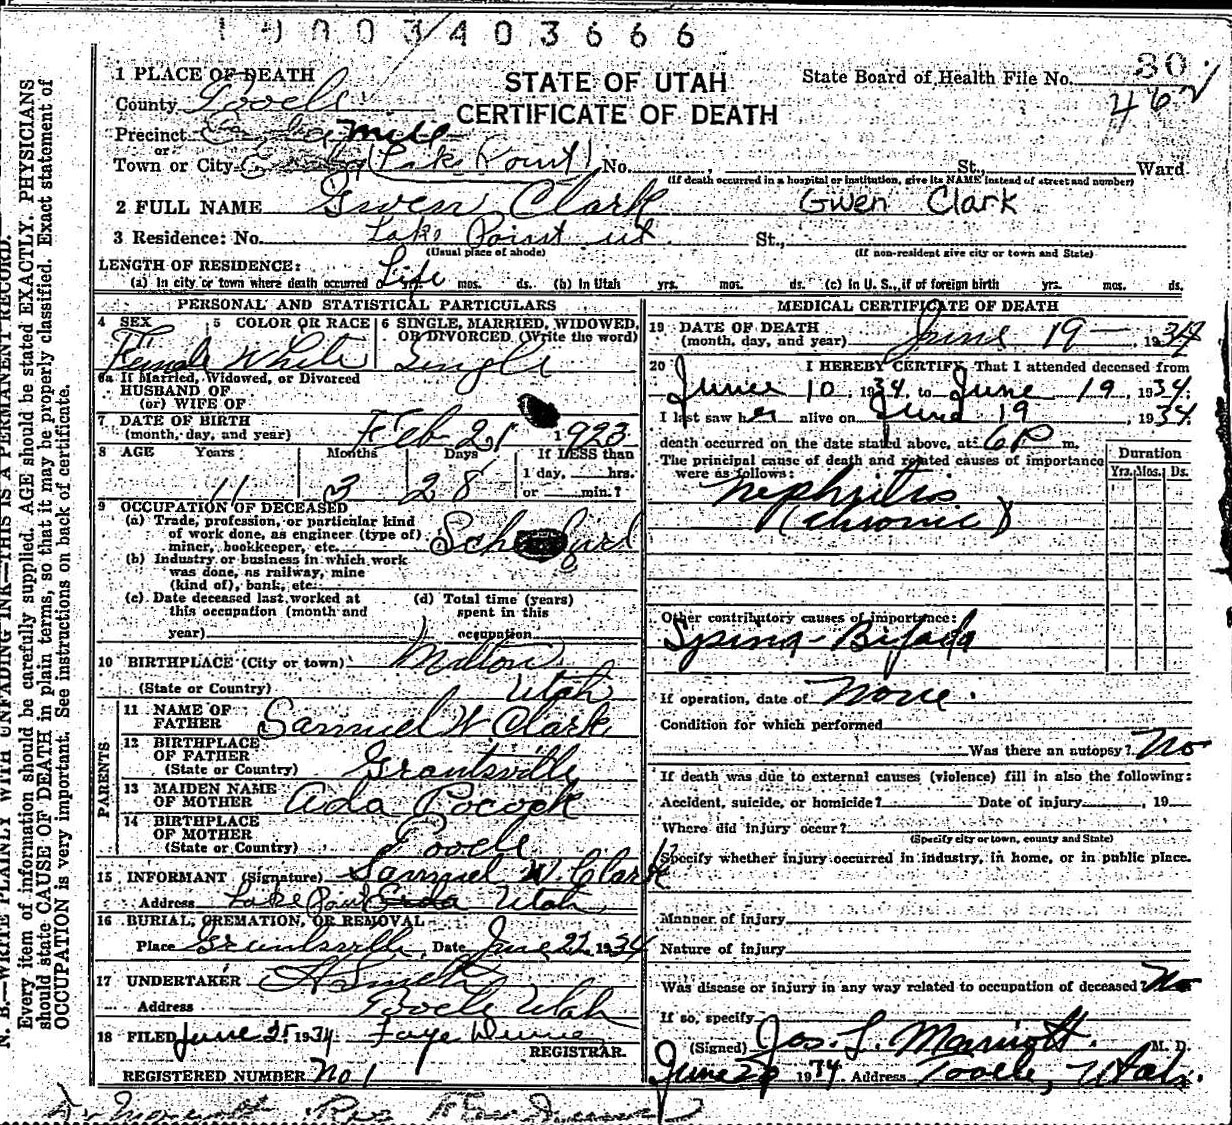 19003403666
1 PLACE OF DEATH
STATE OF UTAH
State Board of Health File No. 30
County Tooele
CERTIFICATE OF DEATH
462
Precinct Mill
or
Town or City (Lake Point) No. St., Ward
(If death occurred in a hospital or institution, give its NAME instead of street and number)
2 FULL NAME Gwen Clark Gwen Clark
3 Residence: No. Lake Point ut. St.,
(Usual place of abode) (If non-resident give city or town and State)
LENGTH OF RESIDENCE:
(a) In city or town where death occurred Life mos. ds. (b) In Utah yrs. mos. ds. (c) In U. S., if of foreign birth yrs. mos. ds.
PERSONAL AND STATISTICAL PARTICULARS
4 SEX 5 COLOR OR RACE 6 SINGLE, MARRIED, WIDOWED,
OR DIVORCED (Write the word)
Female White Single
6a If Married, Widowed, or Divorced
HUSBAND OF
(or) WIFE OF
7 DATE OF BIRTH
(month, day, and year) Feb 21 1923
8 AGE Years Months Days If LESS than
1 day, hrs.
11 3 28 or min.?
9 OCCUPATION OF DECEASED
(a) Trade, profession, or particular kind
of work done, as engineer (type of)
miner, bookkeeper, etc. School Girl
(b) Industry or business in which work
was done, as railway, mine
(kind of), bank, etc.
(c) Date deceased last worked at (d) Total time (years)
this occupation (month and spent in this
year) occupation
10 BIRTHPLACE (City or town) Milton
(State or Country) Utah
PARENTS
11 NAME OF
FATHER Samuel W Clark
12 BIRTHPLACE
OF FATHER
(State or Country) Grantsville
13 MAIDEN NAME
OF MOTHER Ada Pocock
14 BIRTHPLACE
OF MOTHER
(State or Country) Tooele
15 INFORMANT (Signature) Samuel W Clark
Address Lake Point Erda Utah
16 BURIAL, CREMATION, OR REMOVAL
Place Grantsville Date June 22 1934
17 UNDERTAKER A Smith
Address Tooele Utah
18 FILED June 25 1934 Faye Dunn
REGISTRAR.
REGISTERED NUMBER No 1
MEDICAL CERTIFICATE OF DEATH
19 DATE OF DEATH
(month, day, and year) June 19 1934
20 I HEREBY CERTIFY That I attended deceased from
June 10, 1934, to June 19, 1934.
I last saw her alive on June 19, 1934.
death occurred on the date stated above, at 6 P m.
The principal cause of death and related causes of importance
were as follows:
Duration
Yrs. Mos. Ds.
Nephritis
(chronic)
Other contributory causes of importance:
Spina-Bifada
If operation, date of None.
Condition for which performed
Was there an autopsy? No
If death was due to external causes (violence) fill in also the following:
Accident, suicide, or homicide? Date of injury , 19
Where did injury occur?
(Specify city or town, county and State)
Specify whether injury occurred in industry, in home, or in public place.
Manner of injury
Nature of injury
Was disease or injury in any way related to occupation of deceased? No
If so, specify
(Signed) Jos. L. Marriott. M. D.
June 20 1934 Address Tooele, Utah.
N. B.—WRITE PLAINLY WITH UNFADING INK—THIS IS A PERMANENT RECORD.
Every item of information should be carefully supplied. AGE should be stated EXACTLY. PHYSICIANS
should state CAUSE OF DEATH in plain terms, so that it may be properly classified. Exact statement of
OCCUPATION is very important. See instructions on back of certificate.